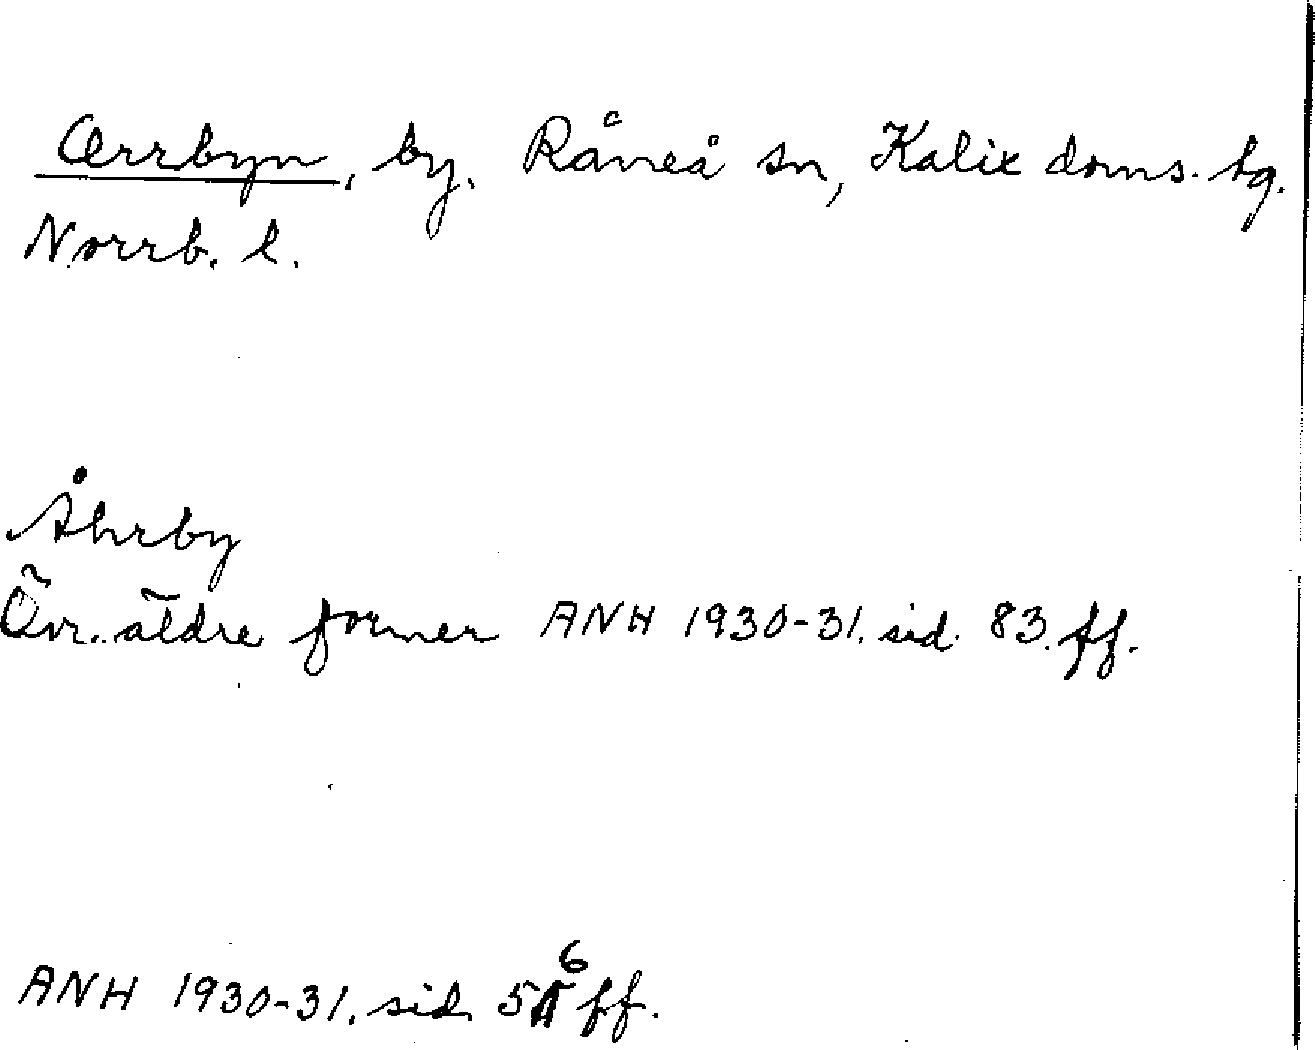 Œrrbyn, by. Råneå sn, Kalix doms. tg.
Norrb. l.
Åhrby
Övr. äldre former ANH 1930-31. sid. 83. ff.
ANH 1930-31. sid. 56 ff.